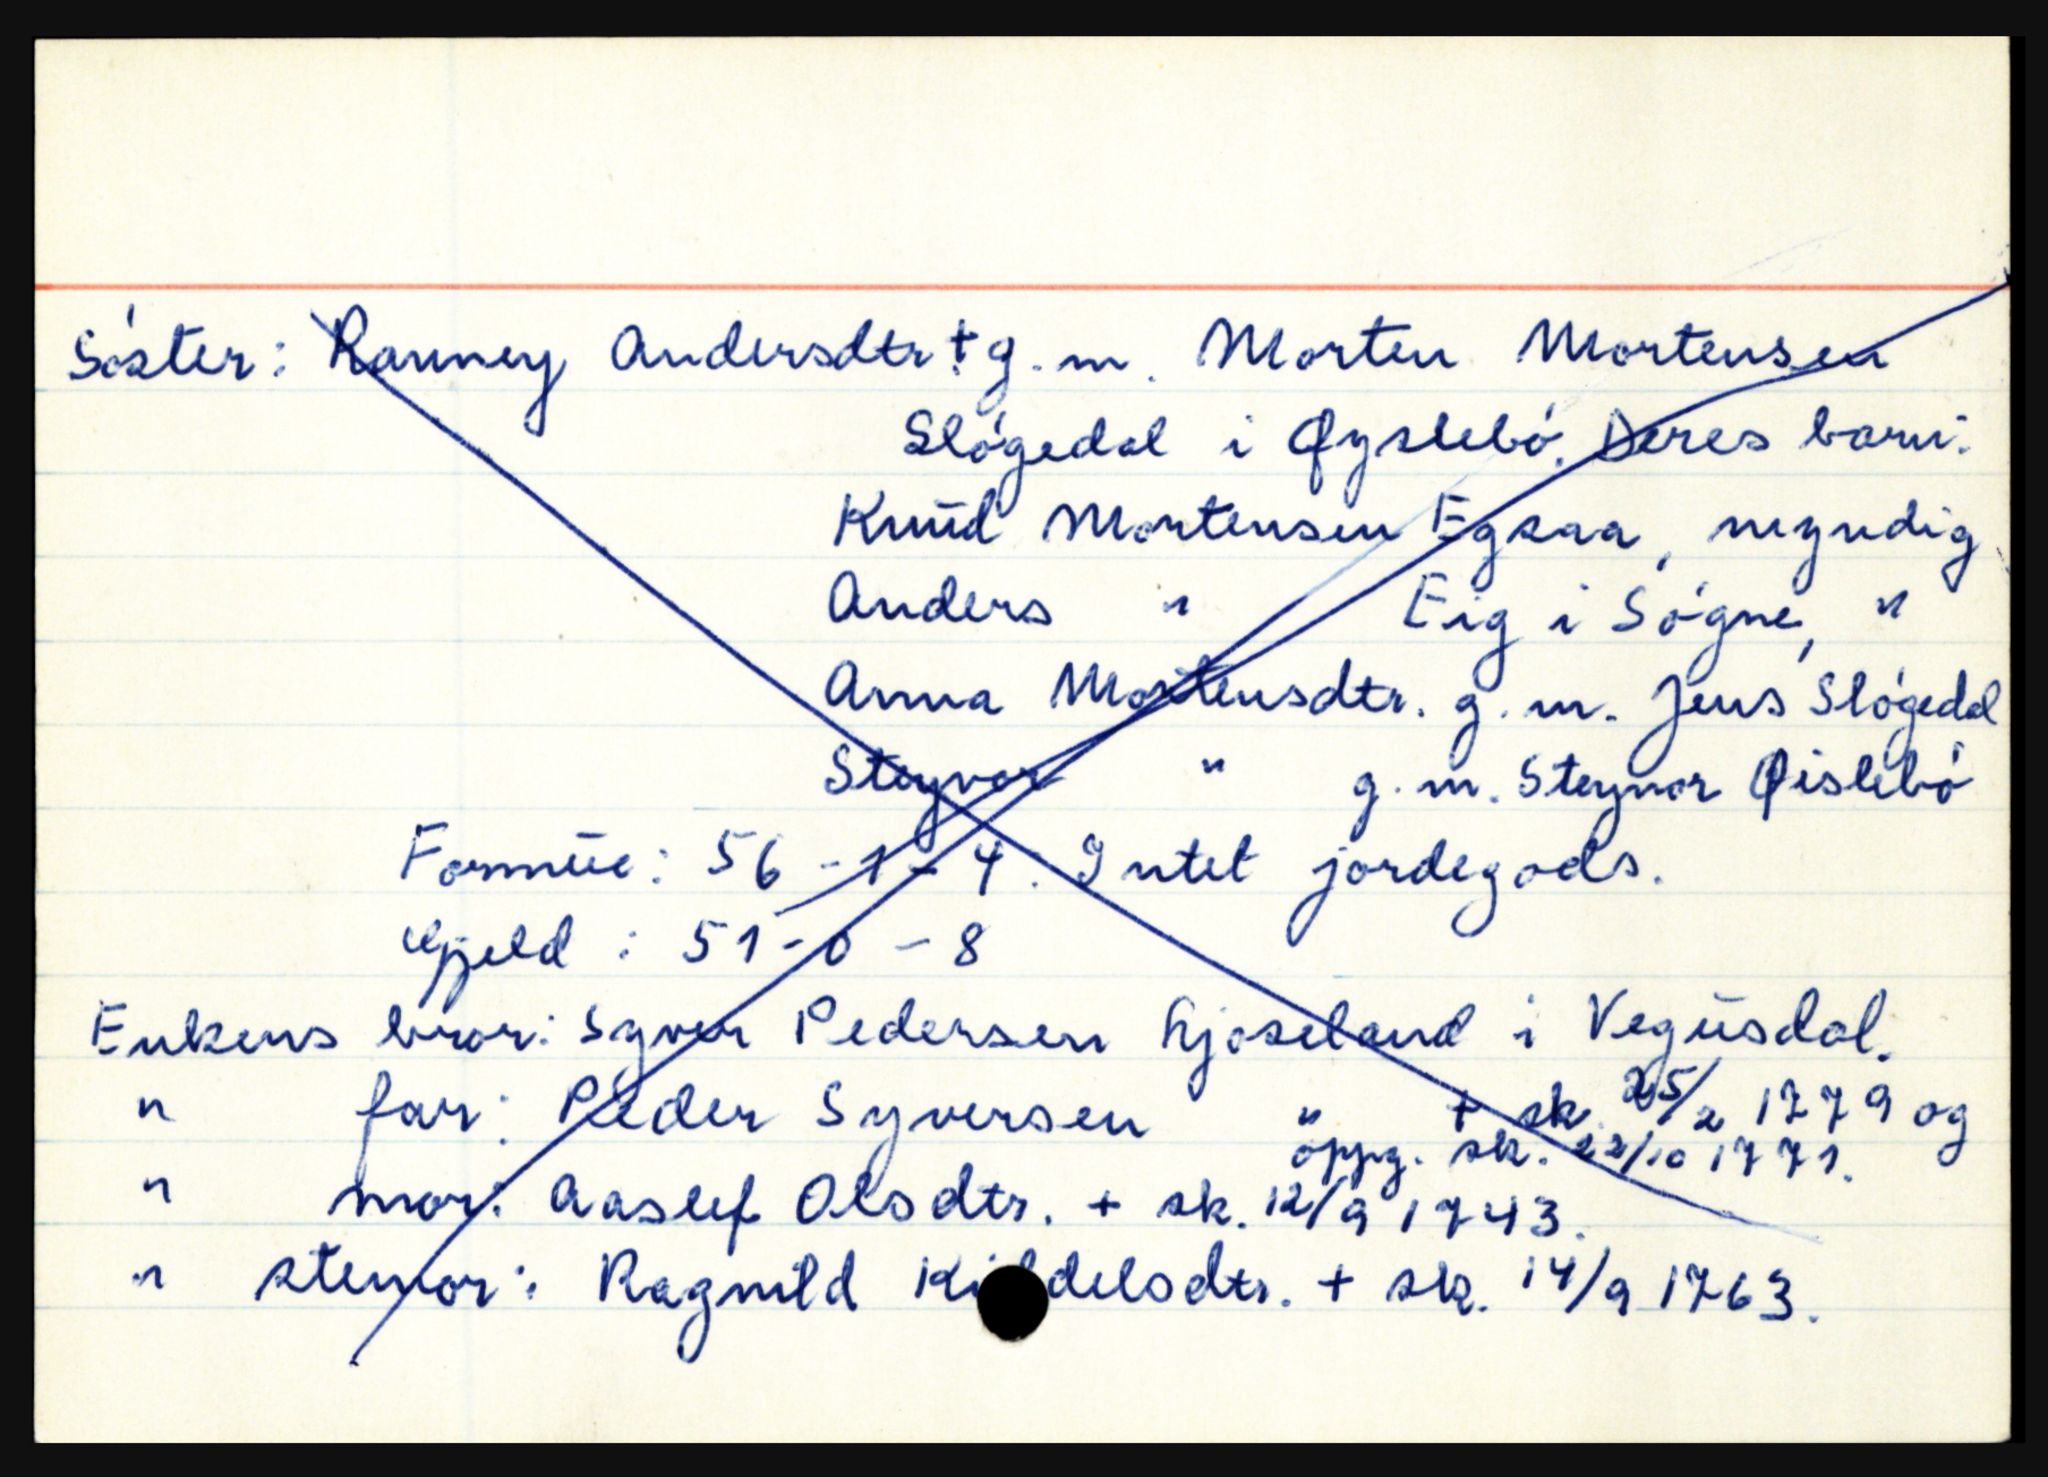 Søster: Ranney Andersdtr † g. m. Morten Mortensen
Sløgedal i Øyslebø. Deres barn:
Knud Mortensen Egsaa, myndig
Anders " Eig i Søgne, "
Anna Mortensdtr. g. m. Jens Sløgedal
Steynor " g. m. Steynor Øislebø
Formue: 56 - 1 - 4. Intet jordegods.
Gjeld : 51 - 0 - 8
Enkens bror: Syver Pedersen Kjoseland i Vegusdal.
" far: Peder Syversen " + sk. 25/2 1779 og
oppg. sk. 22/10 1771.
" mor: Aaslef Olsdtr. + sk. 12/9 1743.
" stemor: Ragnild delsdtr. + sk. 14/9 1763.